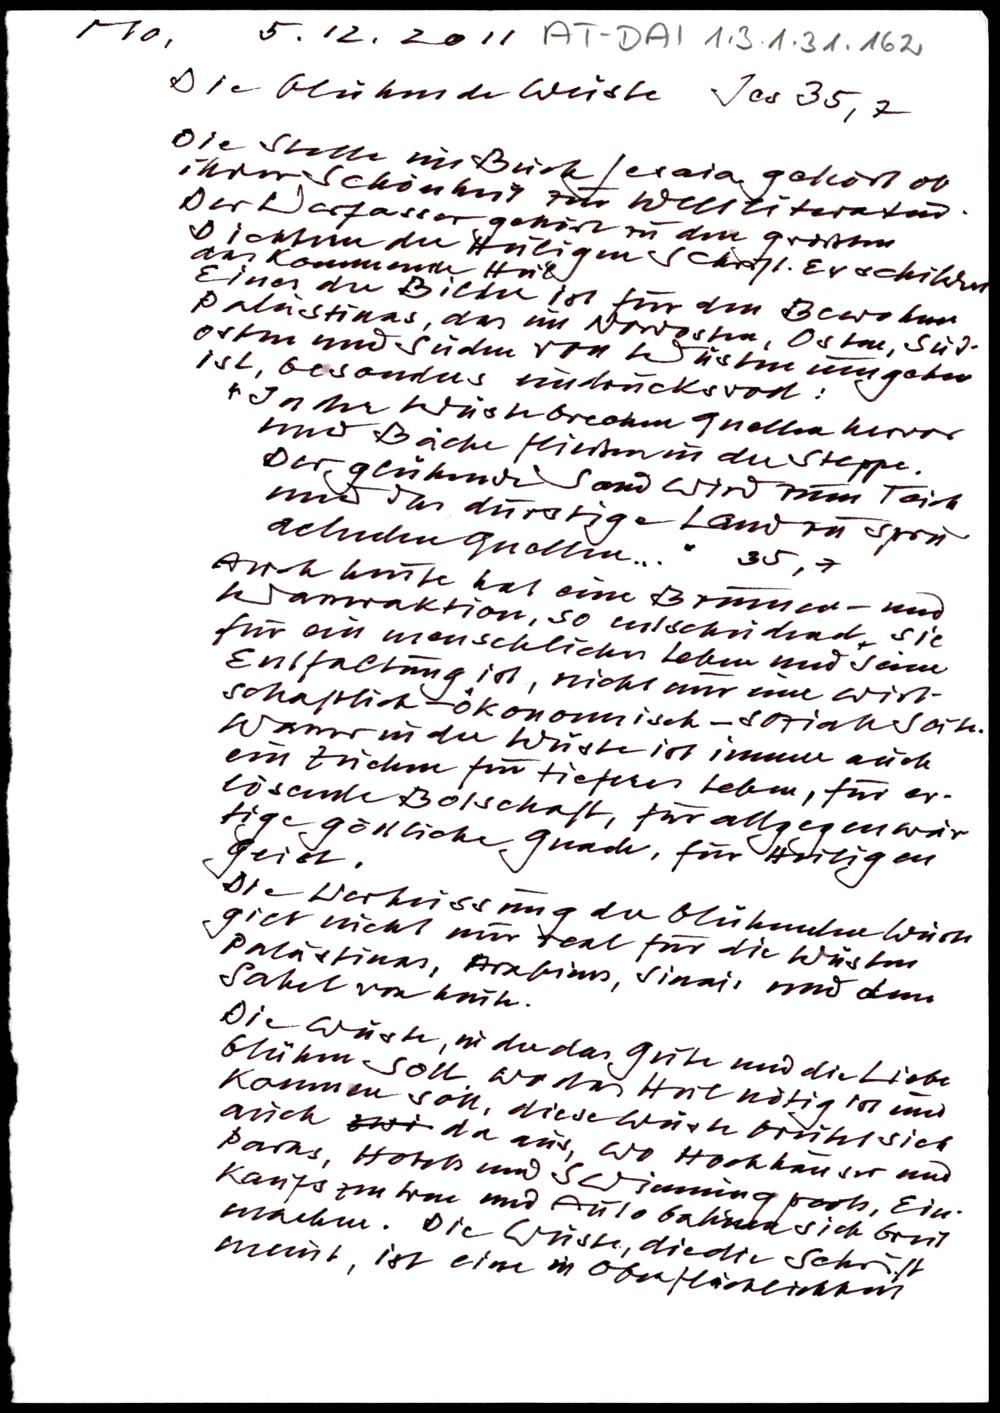 Mo, 5.12.2011 AT-DAI 1.3.1.31.162
Die blühende Wüste Jes 35,7
Die Stelle im Buch Jesaia gehört ob
ihrer Schönheit zur Weltliteratur.
Der Verfasser gehört zu den größten
Dichtern der Heiligen Schrift. Er schildert
das kommende Heil
Eines der Bilder ist für den Bewohner
Palästinas, das im Nordosten, Osten, Süd-
osten und Süden von Wüsten umgeben
ist, besonders eindrucksvoll:
"In der Wüste brechen Quellen hervor
und Bäche fließen in der Steppe.
Der glühende Sand wird zum Teich
und das durstige Land zu spru
delnden Quellen..." 35,7
Auch heute hat eine Brunnen- und
Wasseraktion, so entscheidend sie
für ein menschliches Leben und seine
Entfaltung ist, nicht nur eine wirt-
schaftlich-ökonomisch-soziale Seite.
Wasser in der Wüste ist immer auch
ein Zeichen für tieferes Leben, für er-
lösende Botschaft, für allgegenwär
tige göttliche Gnade, für Heiligen
Geist.
Die Verheissung der blühenden Wüste
gilt nicht nur real für die Wüsten
Palästinas, Arabiens, Sinais und dem
Sahel von heute.
Die Wüste, in der das Gute und die Liebe
blühen soll, wo das Heil nötig ist und
kommen soll, diese Wüste breitet sich
auch da aus, wo Hochhäuser und
Parks, Hotels und Swimmingpools, Ein-
kaufszentren und Autobahnen sich breit
machen. Die Wüste, die die Schrift
meint, ist eine in Oberflächlichkeit